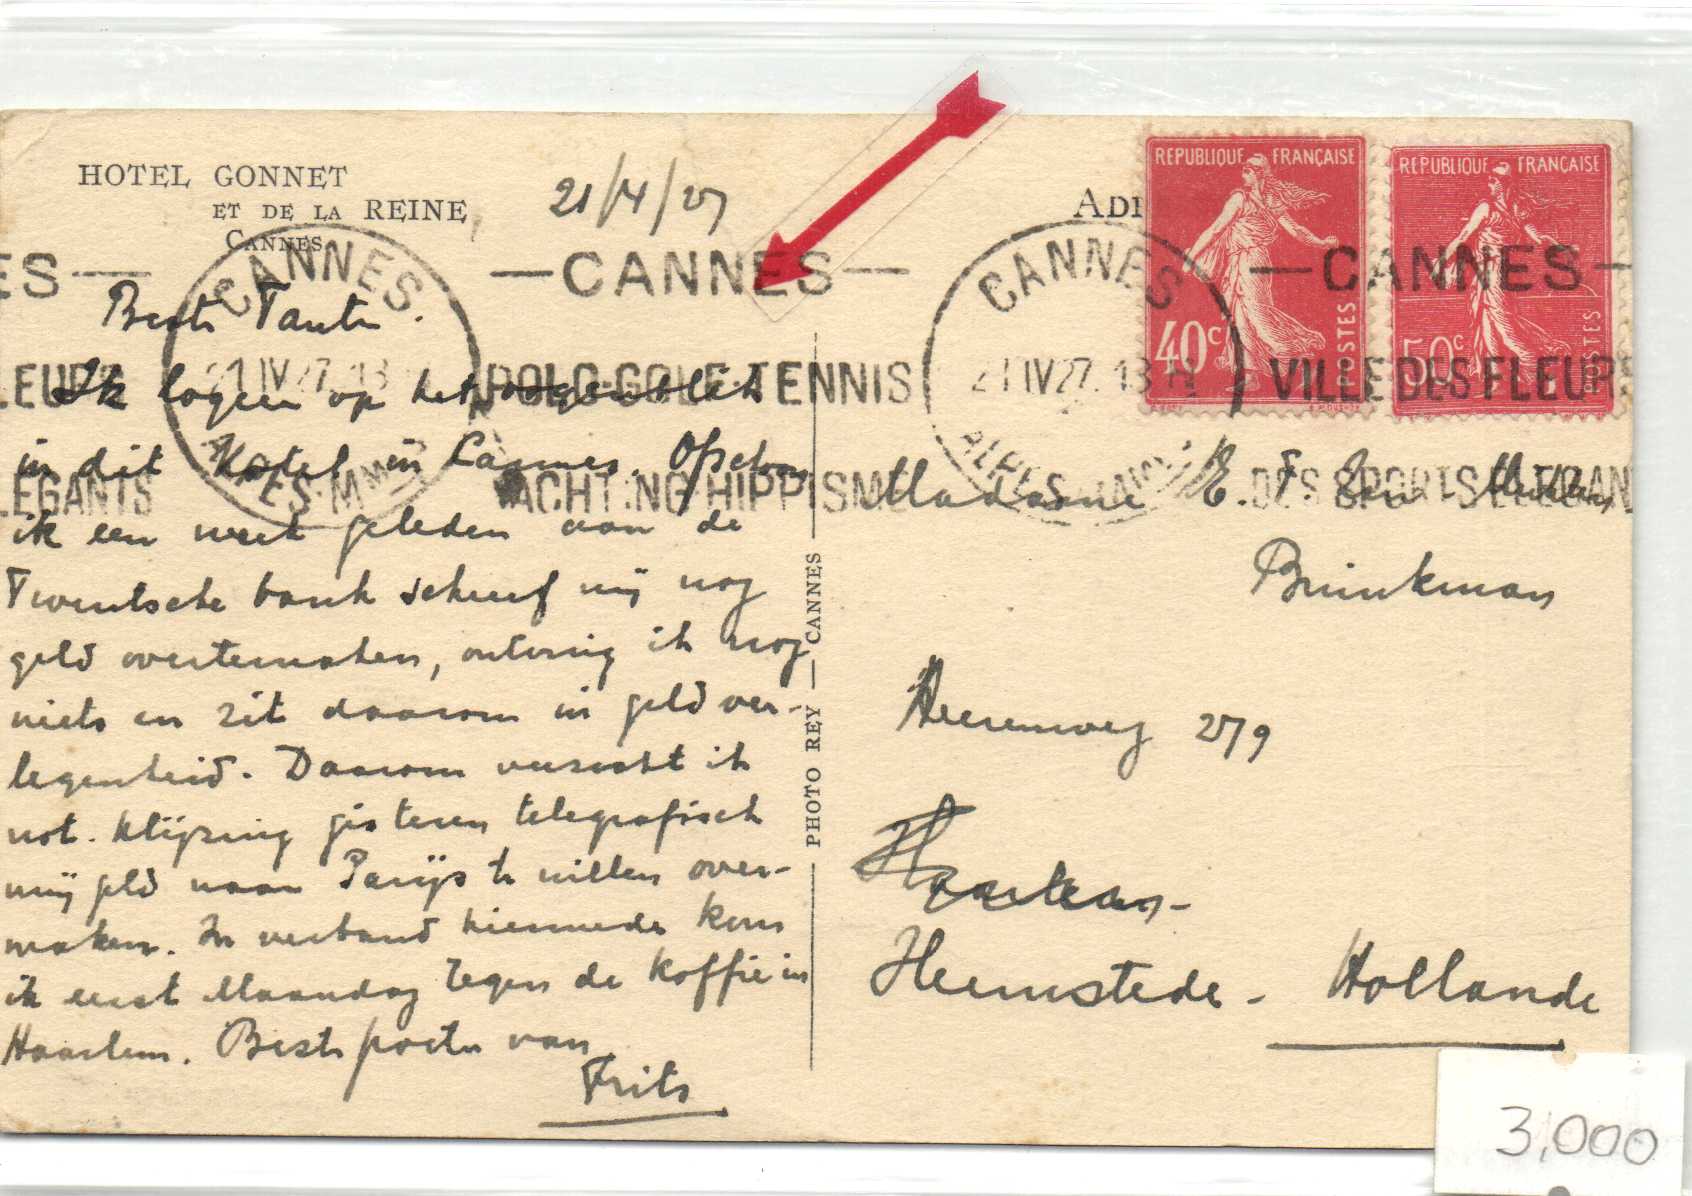 HOTEL GONNET
ET DE LA REINE
CANNES
21/4/27
CANNES
21 IV 27. 13 H
ALPES MMES
—CANNES—
POLO·GOLF·TENNIS
YACHTING·HIPPISME
CANNES
21 IV 27. 13 H
—CANNES—
VILLE DES FLEURS
DES SPORTS ELEGANTS
REPUBLIQUE FRANÇAISE
40c
POSTES
REPUBLIQUE FRANÇAISE
50c
POSTES
Beste Tante.
Ik logeer op het oogenblik
in dit Hotel in Cannes. Ofschoon
ik een week geleden aan de
Twentsche bank schreef mij nog
geld overtemaken, ontving ik nog
niets en zit daarom in geldver-
legenheid. Daarom verzocht ik
not. Klijzing gisteren telegrafisch
mij geld naar Parijs te willen over-
maken. In verband hiermede kom
ik eerst Maandag tegen de koffie in
Haarlem. Beste groeten van
Frits
PHOTO REY — CANNES
Madame E. F.
Brinkman
Heerenweg 279
Haarlem-
Heemstede - Hollande
3,000